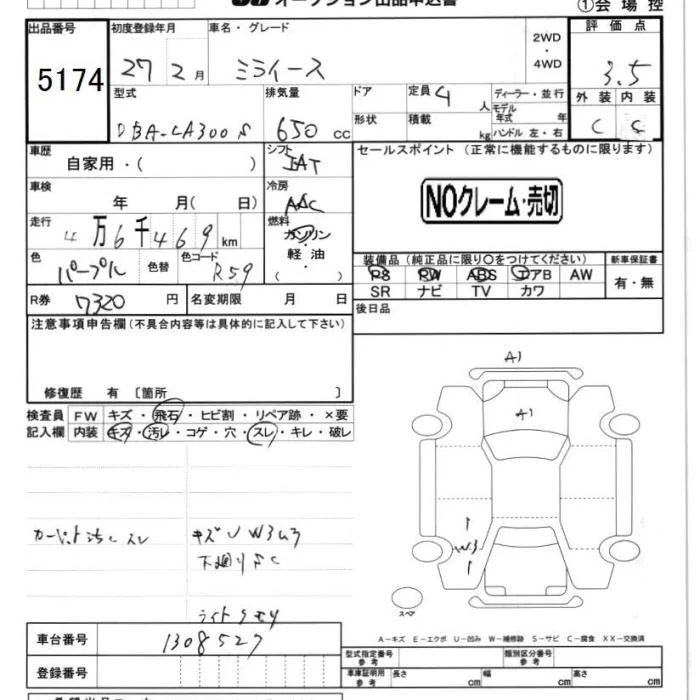 オークション出品申込書
①会場控
出品番号 初度登録年月 車名・グレード 2WD・4WD 評価点
5174 27年2月 ミライース 3.5
型式 排気量 ドア 定員 4人 ディーラー・並行 外装 内装
DBA-LA300S 650cc 形状 積載 kg モデル年式 年 ハンドル 左・右 C C
車歴 自家用・( ) シフト IAT セールスポイント (正常に機能するものに限ります)
車検 年 月( 日) 冷房 AAC
NOクレーム・売切
走行 4万6千469km 燃料 ガソリン・軽油・( )
色 パープル 色替 色コード R59
装備品(純正品に限り○をつけてください) 新車保証書
PS PW ABS エアB AW 有・無
SR ナビ TV カワ
R券 7320円 名変期限 月 日 後日品
注意事項申告欄(不具合内容等は具体的に記入して下さい)
修復歴 有 〔箇所 〕
検査員記入欄 FW キズ・飛石・ヒビ割・リペア跡・×要
内装 キズ・汚レ・コゲ・穴・スレ・キレ・破レ
A1
A1
W3
カーペット汚レ スレ
下廻りSC
ライトクモリ
スペア
A−キズ E−エクボ U−凹み W−補修跡 S−サビ C−腐食 XX−交換済
車台番号 1308527
型式指定番号 参考 類別区分番号 参考
登録番号 車庫証明用 参考 長さ cm 幅 cm 高さ cm